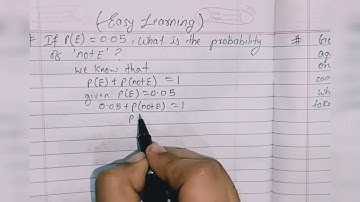 (Easy Learning)
If P(E) = 0.05, what is the probability
of 'not E'?
we know that
P(E) + P(not E) = 1
given P(E) = 0.05
0.05 + P(not E) = 1
P
#